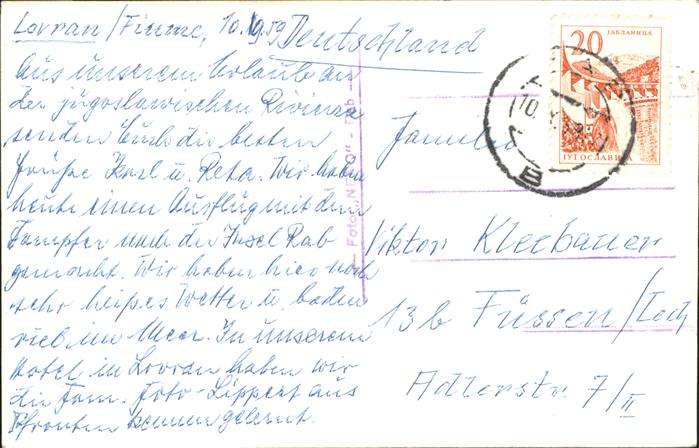 Lovran/Fiume, 10.9.59
Aus unserem Urlaub an
der jugoslawischen Riviera
senden Euch die besten
Grüße Karl u. Reta. Wir haben
heute einen Ausflug mit dem
Dampfer nach der Insel Rab
gemacht. Wir haben hier noch
sehr heißes Wetter u. baden
viel im Meer. In unserem
Hotel in Lovran haben wir
die Fam. Foto-Lippert aus
Pfronten kennen gelernt.
Deutschland
Familie
Viktor Kleebauer
13b Füssen/Lech
Adlerstr. 7/II
20
ЈАБЛАНИЦА
ЈУГОСЛАВИЈА
10.
B